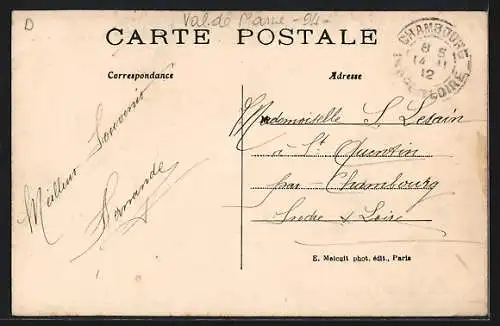 D
Val de Marne - 94 -
CARTE POSTALE
CHAMBOURG
8 5
14 11
12
INDRE & LOIRE
Correspondance
Adresse
Meilleur Souvenir
Fernande
Mademoiselle S. Lesain
à St Quentin
par Chambourg
Indre & Loire
E. Malcuit phot. édit., Paris